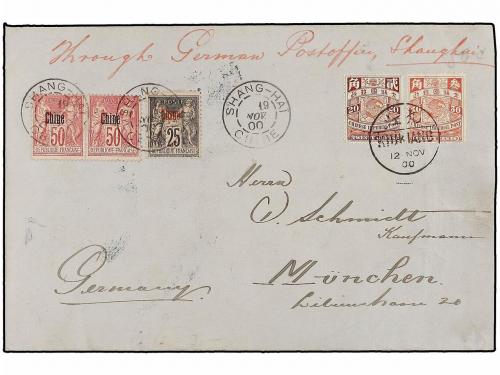 Through German Postoffice, Shanghai
SHANG-HAI
CHINE
SHANG-HAI
19
NOV
00
CHINE
Chine
50
Chine
50
Chine
25
角 貳
20
角 叁
30
KIUKIANG
12 NOV
00
Herrn
J. Schmidt
Kaufmann
Germany
München
Lilienstrasse 20